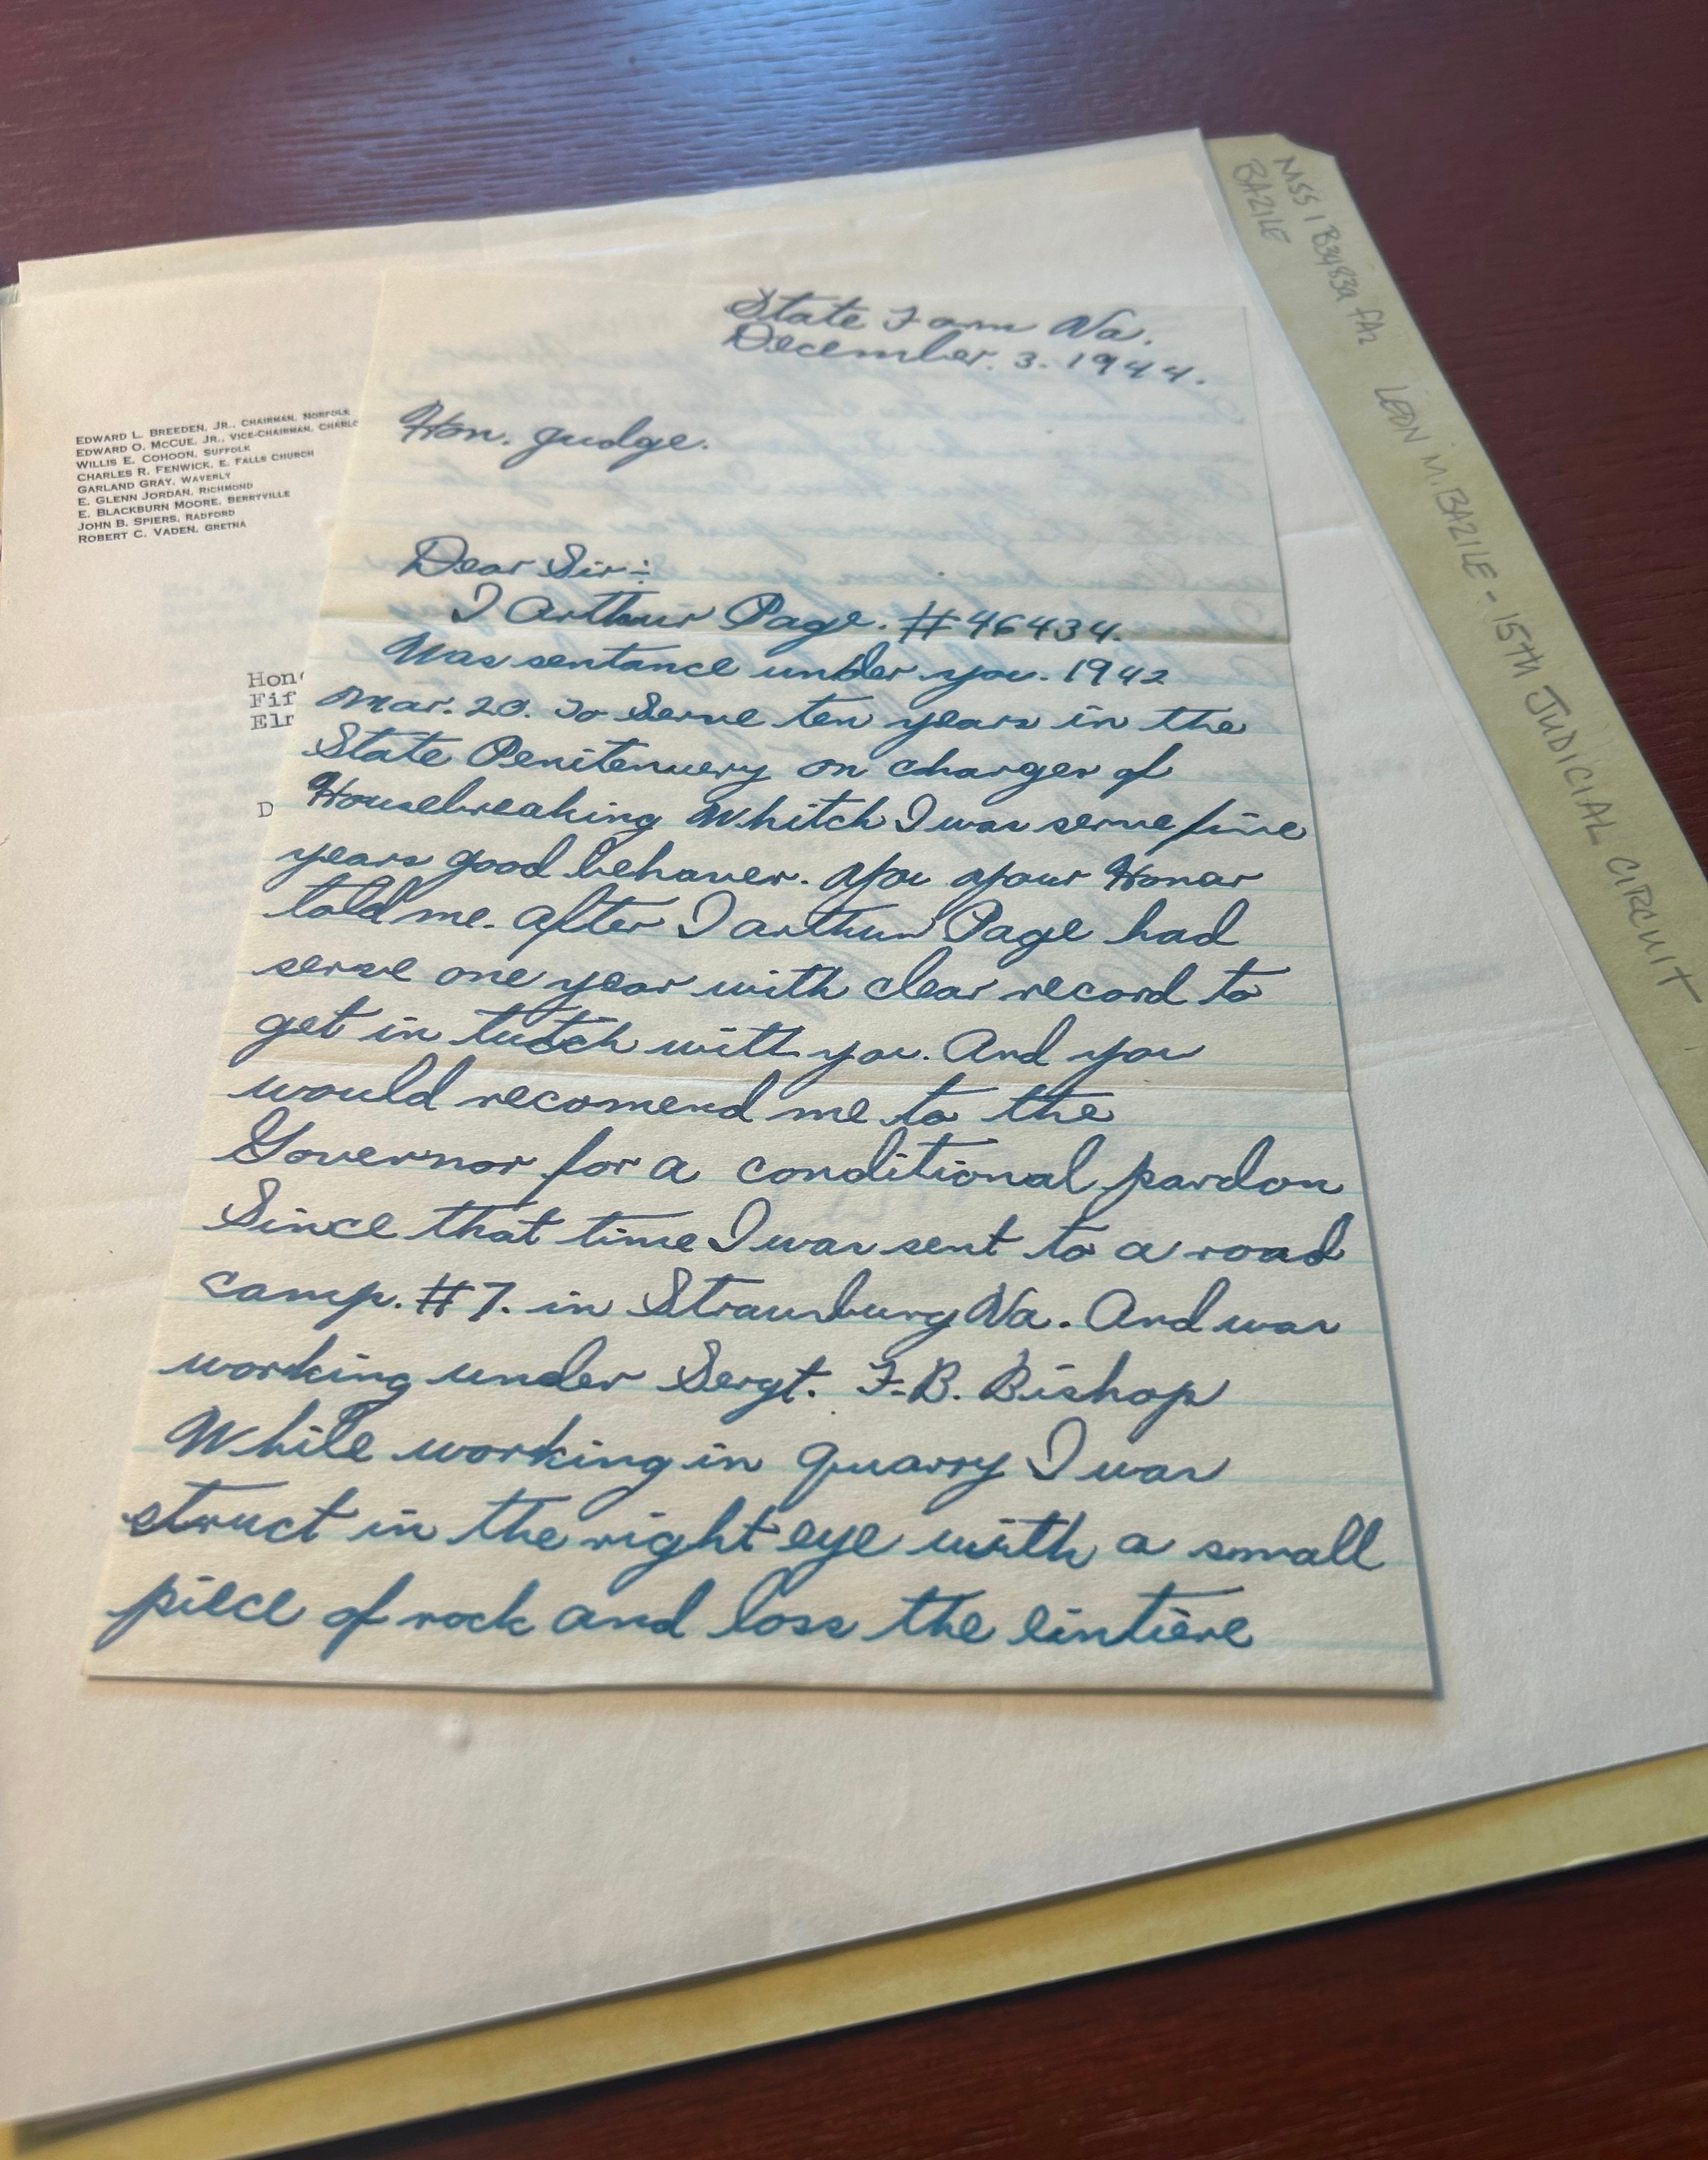 MSS 1 B3483a FA2 LEON M. BAZILE - 15TH JUDICIAL CIRCUIT
BAZILE
EDWARD L. BREEDEN, JR., CHAIRMAN, NORFOLK
EDWARD O. MCCUE, JR., VICE-CHAIRMAN, CHARLO
WILLIS E. COHOON, SUFFOLK
CHARLES R. FENWICK, E. FALLS CHURCH
GARLAND GRAY, WAVERLY
E. GLENN JORDAN, RICHMOND
E. BLACKBURN MOORE, BERRYVILLE
JOHN B. SPIERS, RADFORD
ROBERT C. VADEN, GRETNA
Hon
Fif
El
D
State Farm Va.
December. 3. 1944.
Hon. Judge.
Dear Sir:
I Arthur Page. #46434.
Was sentance under you. 1942
Mar. 20. To Serve ten years in the
State Penitenuery on charger of
Housebreaking Whitch I was serve five
years good behaver. You your Honar
told me. After I Arthur Page had
serve one year with clear record to
get in tutch with you. And you
would recomend me to the
Governor for a conditional pardon
Since that time I was sent to a road
camp. #7. in Strausburg Va. And was
working under Sergt. F.B. Bishop
While working in quarry I was
struct in the right eye with a small
piece of rock and loss the eintiere